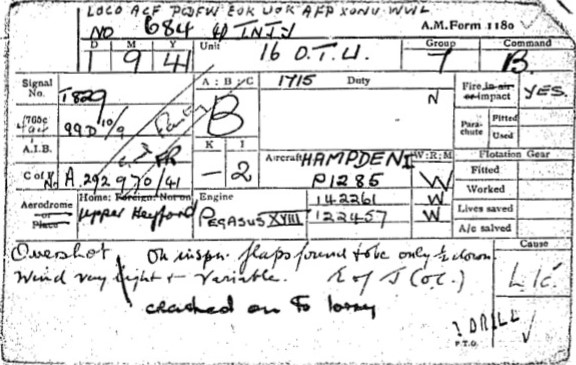 LOCO ACF
NO 684 INJY A.M. Form 1180
D M Y Unit Group Command
1 9 41 16 O.T.U. 7 B.
Signal No. T829 A : B : C 1715 Duty Fire in air or impact YES.
B N
/760c 99D 10/9 Para-chute Fitted
Used
A.I.B. K I Flotation Gear
C of V No A.292970/41 - 2 Aircraft HAMPDEN I W : R : M Fitted
P1285 W Worked
Aerodrome or Place Home: Foreign: Not on Engine 142261 W Lives saved
Upper Heyford PEGASUS XVIII 122457 W A/c salved
Overshot On inspn. flaps found to be only ½ down Cause
Wind very light + variable. E of J (o.c.)
crashed on to lorry
! DRILL
P.T.O.